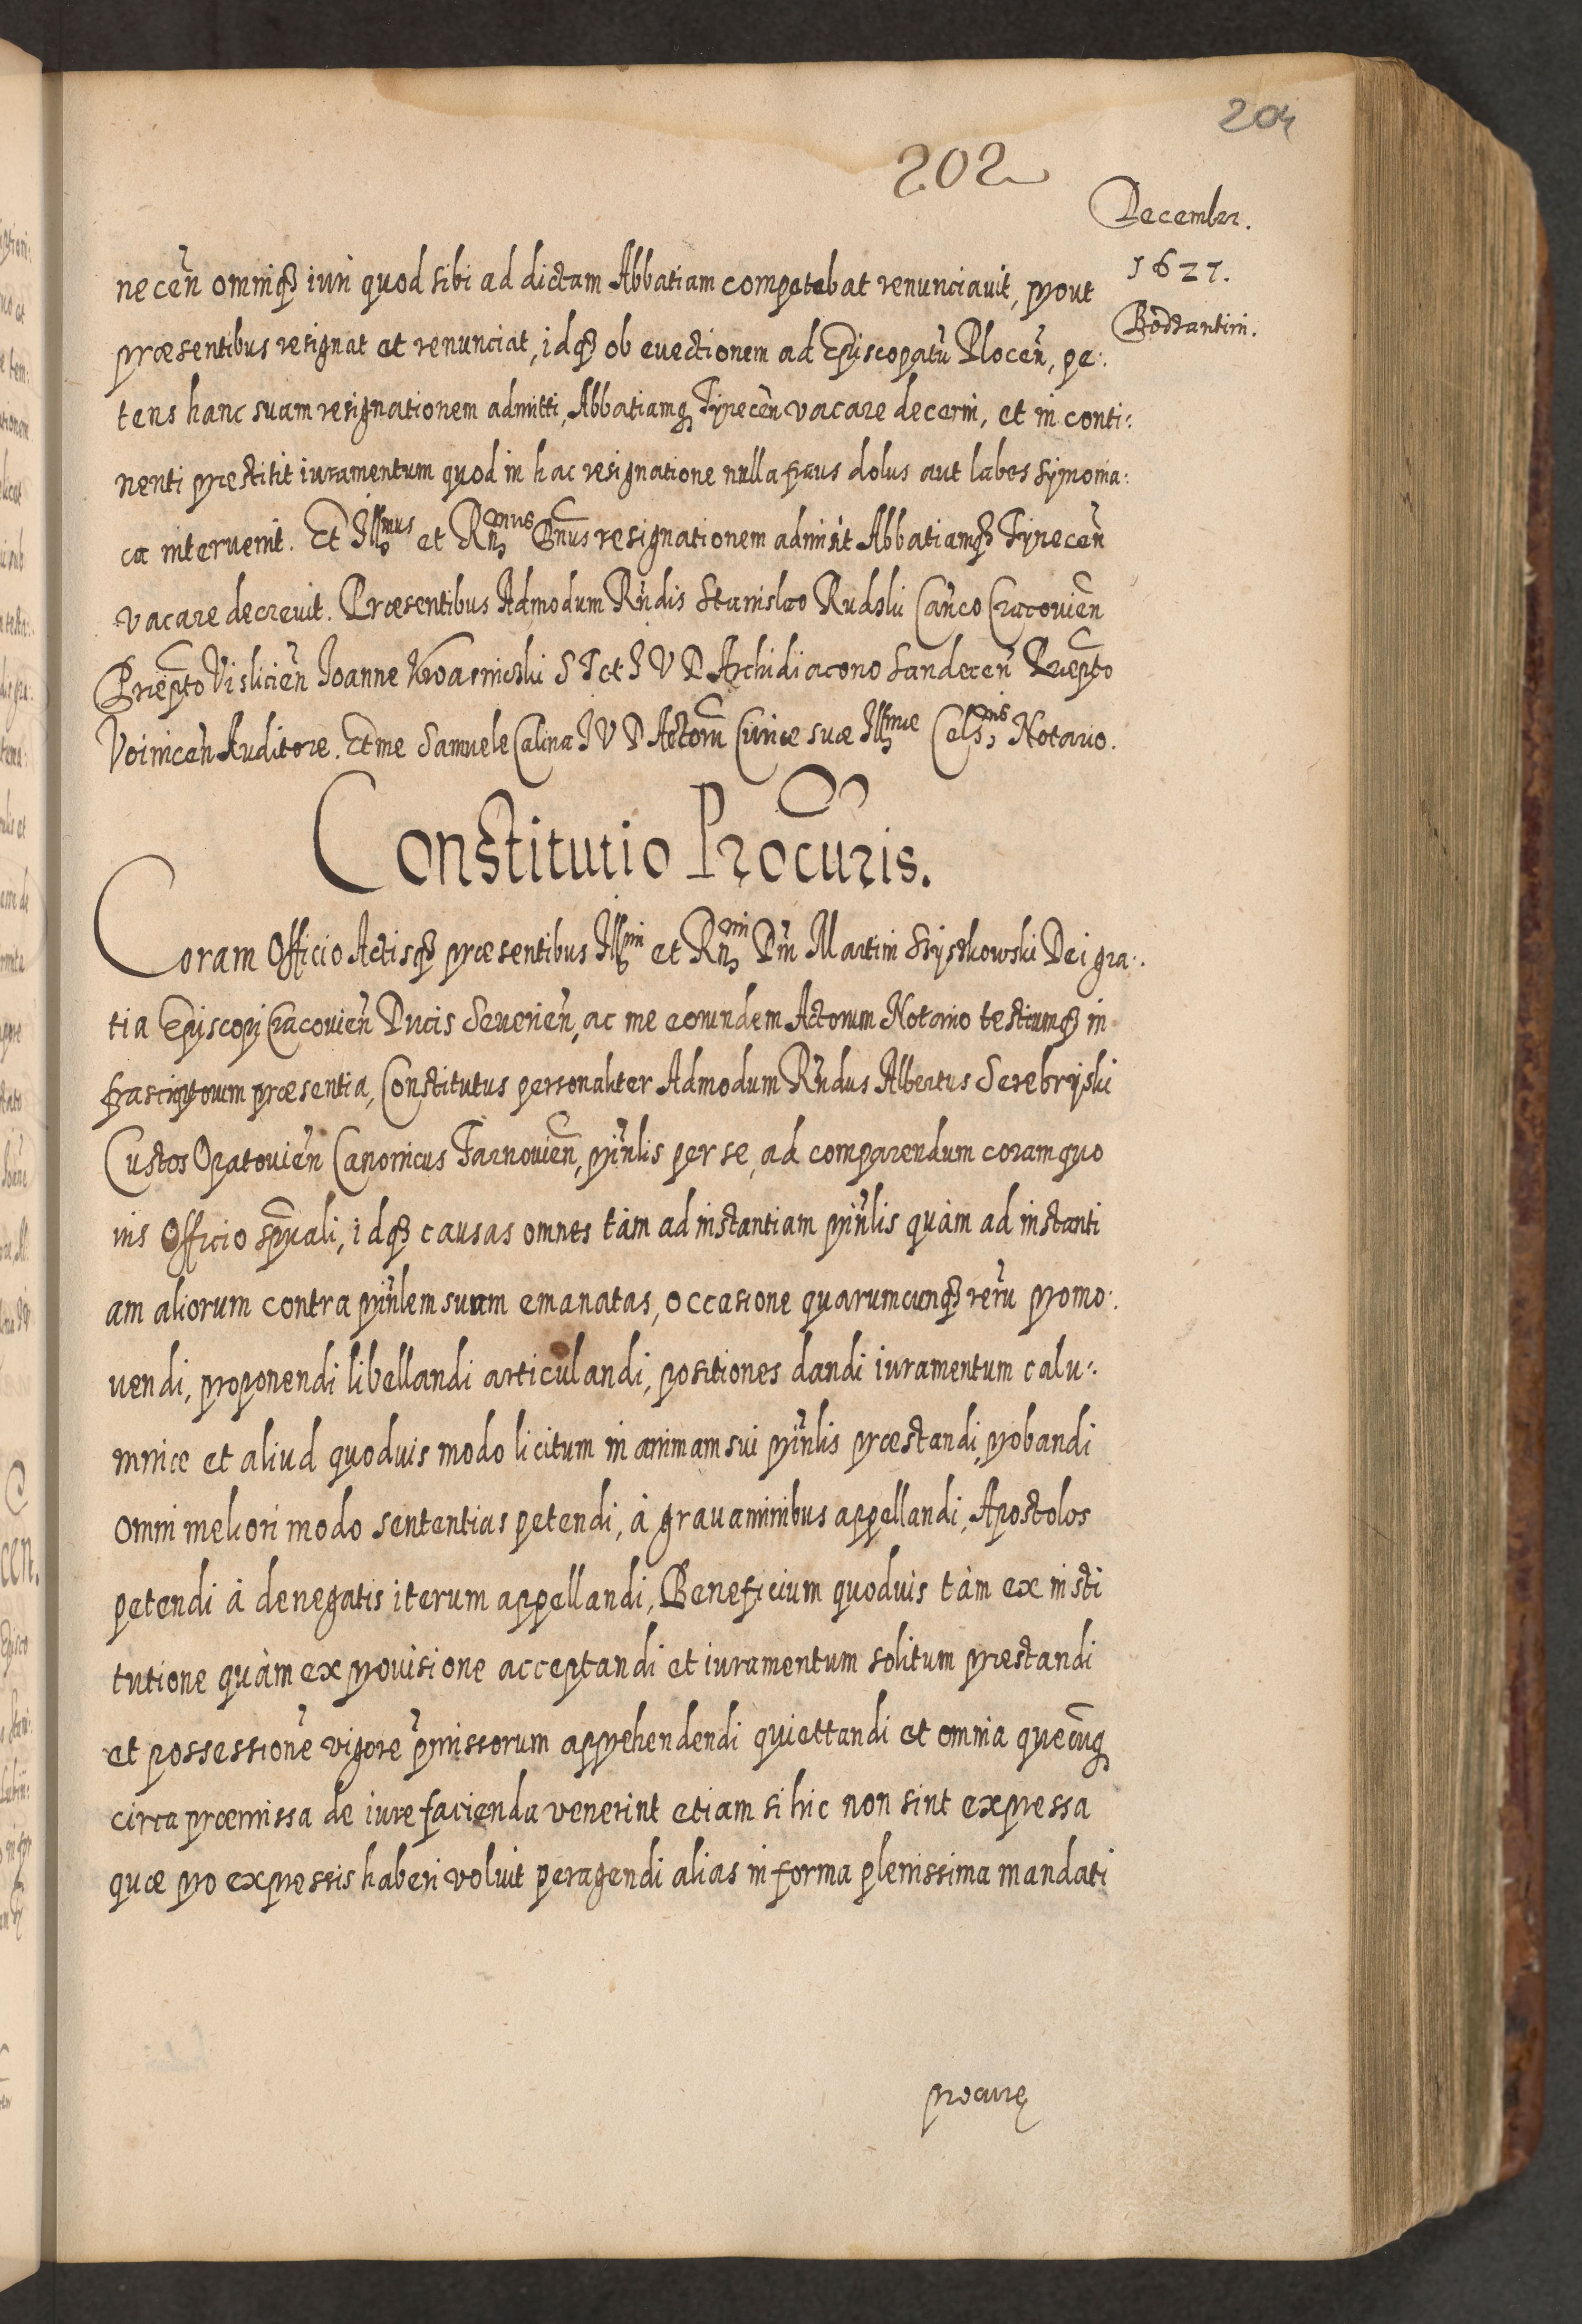 204
202
Decembr.
1627.
Bodzantini.
necen̄ omniq; iuri quod sibi ad dictam Abbatiam competebat renunciauit, prout
præsentibus resignat et renunciat, idq; ob euectionem ad Episcopatū Plocen̄, pe:
tens hanc suam resignationem admitti, Abbatiamq; Tynecen̄ vacare decerni, et in conti:
nenti præstitit iuramentum quod in hac resignatione nulla fraus dolus aut labes symonia:
ca interuenit. Et Illmus et Rnmus Dn̄us resignationem admisit Abbatiamq; Tynecen̄
vacare decreuit. Præsentibus Admodum Rn̄dis Stanislao Rudski Can̄co Cracouien̄
Præpto Vislicien̄ Joanne Kwasnicki S T et J V D Archidiacono Sandecen̄ Præpto
Voinicen̄ Auditore. Et me Samuele Calina J V D Actorū Curiæ suæ Illmæ Celsnis Notario.
Constitutio Procuris.
Coram Officio Actisq; præsentibus Illmi et Rnmi Dn̄i Martini Szyszkowski Dei gra:
tia Episcopi Cracouien̄ Ducis Seuerien̄, ac me eorundem Actorum Notario testiumq; in
frascriptorum præsentia, Constitutus personaliter Admodum Rn̄dus Albertus Serebryski
Custos Opatouien̄ Canonicus Tarnouien̄, prin̄lis per se, ad comparendum coram quo
uis Officio spūali, idq; causas omnes tàm ad instantiam prin̄lis quàm ad instanti
am aliorum contra prin̄lem suum emanatas, occasione quarumcunq; rerū promo:
uendi, proponendi libellandi articulandi, positiones dandi iuramentum calu:
mniæ et aliud quoduis modo licitum in animam sui prin̄lis præstandi, probandi
omni meliori modo sententias petendi, à grauaminibus appellandi, Apostolos
petendi à denegatis iterum appellandi, Beneficium quoduis tàm ex insti
tutione quàm ex prouisione acceptandi et iuramentum solitum præstandi
et possessionē vigore p̄missorum apprehendendi quiettandi et omnia quæcūq;
circa præmissa de iure facienda venerint etiam si hic non sint expressa
quæ pro expressis haberi voluit peragendi alias in forma plenissima mandati
procure